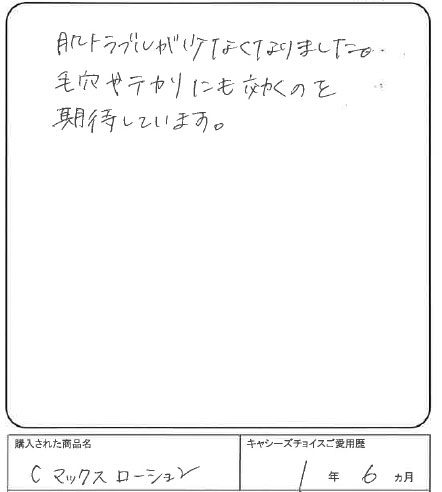 肌トラブルが少なくなりました。
毛穴やテカリにも効くのを
期待しています。
購入された商品名
キャシーズチョイスご愛用歴
C マックス ローション
1 年 6 ヵ月